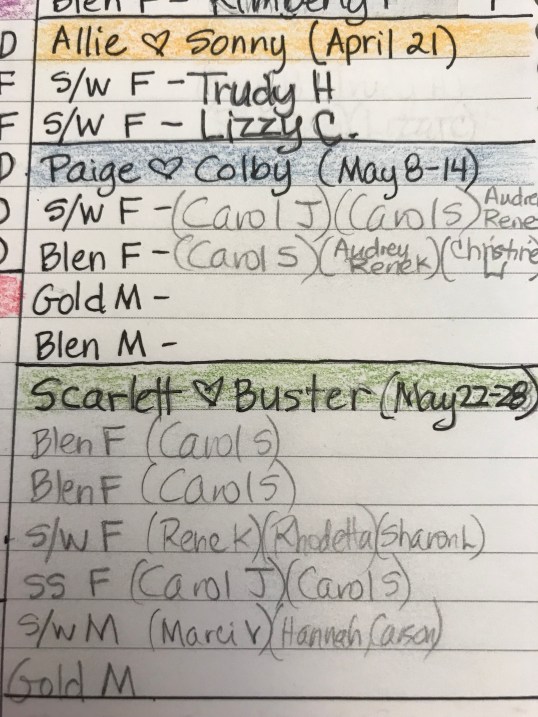 Blen F - Kimberly
D Allie ♡ Sonny (April 21)
F S/W F - Trudy H
F S/W F - Lizzy C.
D Paige ♡ Colby (May 8-14)
S/W F - (Carol J) (Carol S) Audre Rene
Blen F - (Carol S) (Audrey Renek) (Christine
Gold M -
Blen M -
Scarlett ♡ Buster (May 22-28)
Blen F (Carol S)
Blen F (Carol S)
S/W F (Rene K) (Rhodetta) (Sharon L)
SS F (Carol J) (Carol S)
S/W M (Marci V) (Hannah Carson)
Gold M